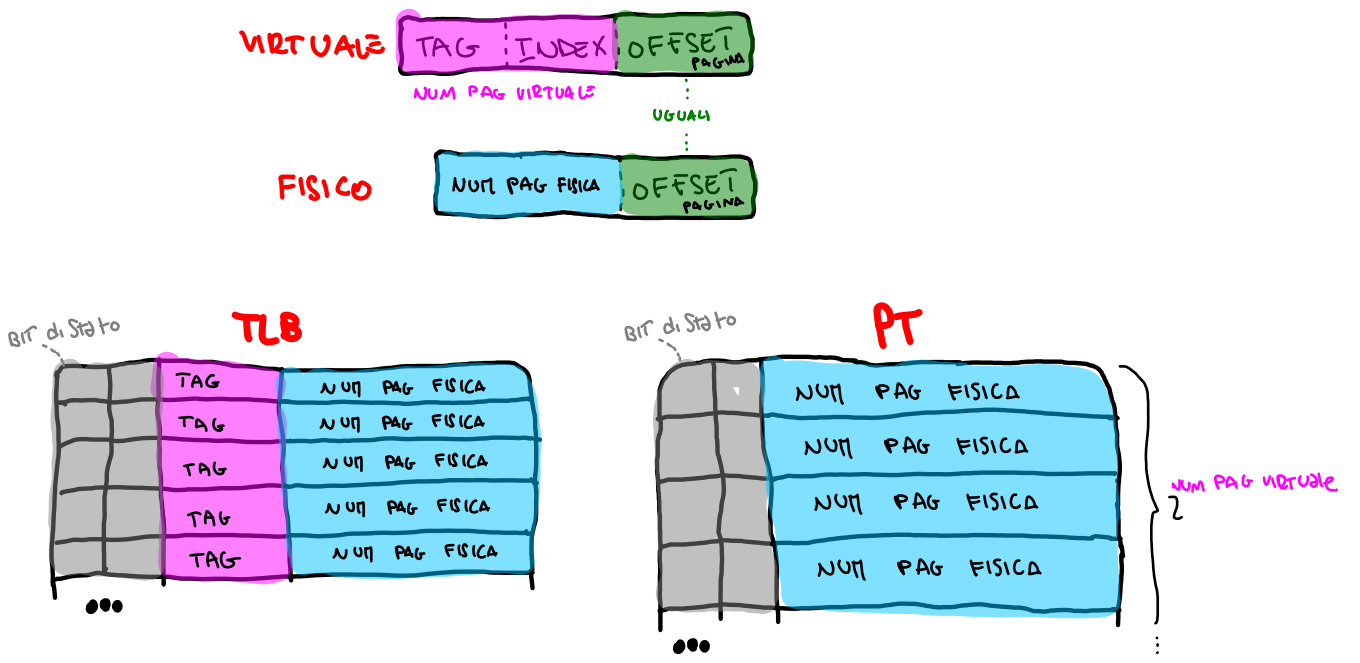 VIRTUALE TAG INDEX OFFSET
PAGINA
NUM PAG VIRTUALE
UGUALI
FISICO NUM PAG FISICA OFFSET
PAGINA
TLB
BIT di Stato
TAG NUM PAG FISICA
TAG NUM PAG FISICA
TAG NUM PAG FISICA
TAG NUM PAG FISICA
TAG NUM PAG FISICA
PT
BIT di Stato
NUM PAG FISICA
NUM PAG FISICA
NUM PAG FISICA
NUM PAG FISICA
2 NUM PAG VIRTUALE